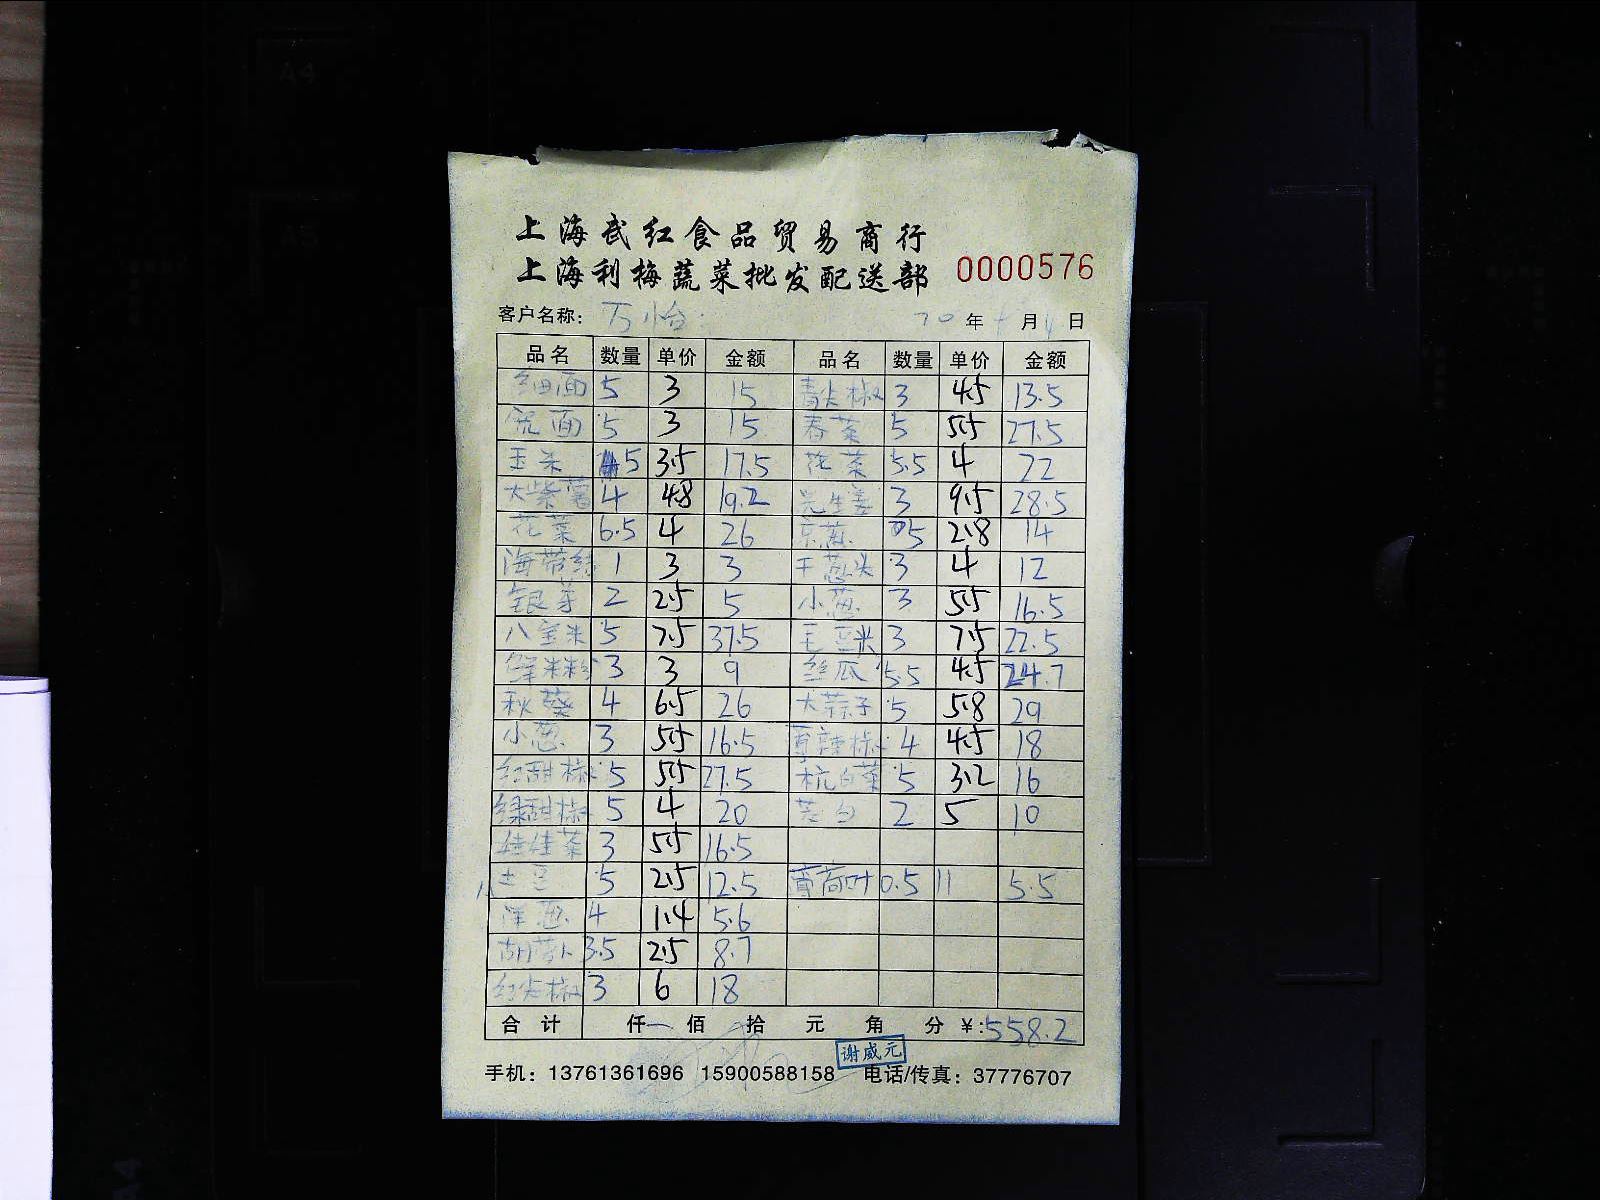 上海武红食品贸易商行
上海利梅蔬菜批发配送部 0000576
客户名称: 万怡 20 年 月 日
品名 数量 单价 金额 品名 数量 单价 金额
细面 5 3 15 青尖椒 3 4.5 13.5
宽面 5 3 15 春菜 5 5.5 27.5
玉米 5 3.5 17.5 花菜 5.5 4 22
大紫薯 4 4.8 19.2 生姜 3 9.5 28.5
花菜 6.5 4 26 京葱 5 2.8 14
海带结 1 3 3 干葱头 3 4 12
银芽 2 2.5 5 小葱 3 5.5 16.5
八宝米 5 7.5 37.5 毛豆米 3 7.5 22.5
鲜米粉 3 3 9 丝瓜 5.5 4.5 24.7
秋葵 4 6.5 26 大蒜子 5 5.8 29
小葱 3 5.5 16.5 辣椒 4 4.5 18
红甜椒 5 5.5 27.5 杭白菜 5 3.2 16
绿甜椒 5 4 20 茭白 2 5 10
娃娃菜 3 5.5 16.5
土豆 5 2.5 12.5 薄荷叶 0.5 11 5.5
洋葱 4 1.4 5.6
胡萝卜 3.5 2.5 8.7
红尖椒 3 6 18
合计 仟 佰 拾 元 角 分 ¥:558.2
谢威元
手机: 13761361696 15900588158 电话/传真: 37776707